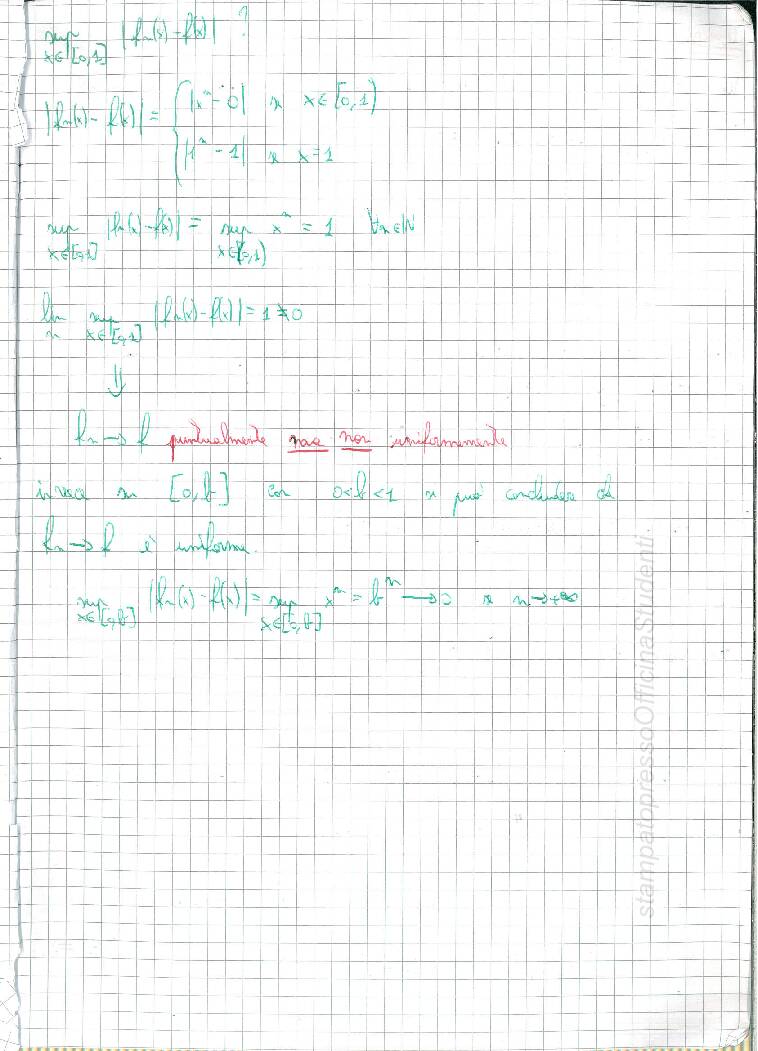 sup |fn(x) - f(x)| ?
x∈[0,1]
|fn(x) - f(x)| = { |xⁿ - 0| se x∈[0,1)
|1ⁿ - 1| se x=1
sup |fn(x) - f(x)| = sup xⁿ = 1 ∀n∈ℕ
x∈[0,1] x∈[0,1)
lim sup |fn(x) - f(x)| = 1 ≠ 0
n x∈[0,1]
⇓
fn → f puntualmente ma non uniformemente
invece su [0,b] con 0<b<1 si può concludere ch
fn → f è uniforme.
sup |fn(x) - f(x)| = sup xⁿ = bⁿ → 0 se n→+∞
x∈[0,b] x∈[0,b]
stampatopressoOfficinaStudenti